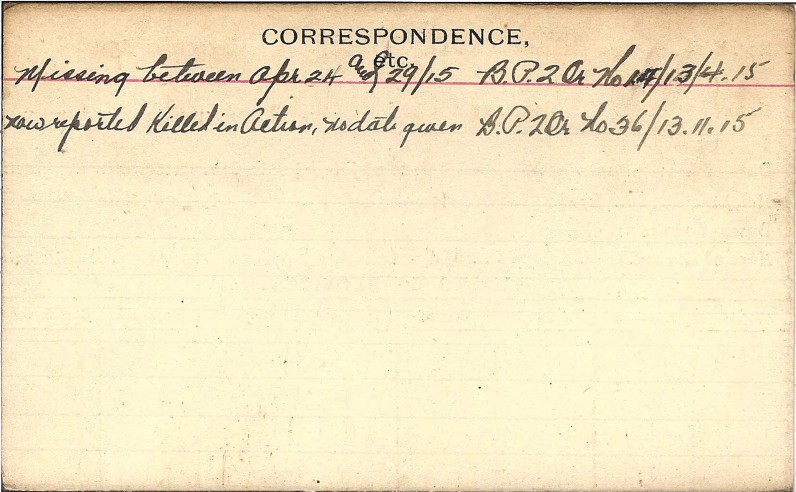 CORRESPONDENCE,
etc.
Missing between Apr 24 and 29/15 B.P. 2 Or No 14/13/4.15
now reported Killed in Action, no date given B.P. 2 Or No 36/13.11.15